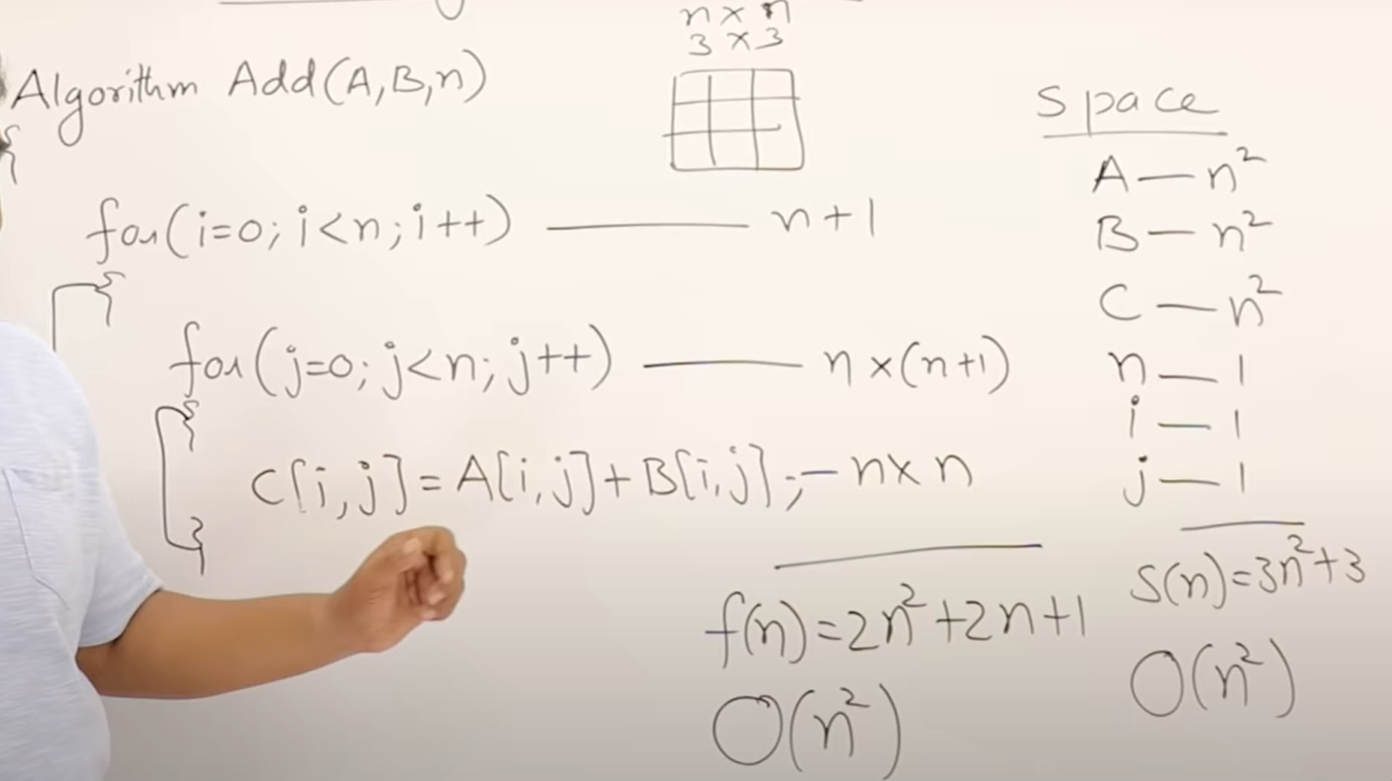 n × n
3 × 3
Algorithm Add(A,B,n)
{
for(i=0; i<n; i++) —— n+1
{
for(j=0; j<n; j++) —— n×(n+1)
{
C[i,j]=A[i,j]+B[i,j]; — n×n
}
f(n)=2n²+2n+1
O(n²)
Space
A — n²
B — n²
C — n²
n — 1
i — 1
j — 1
S(n)=3n²+3
O(n²)